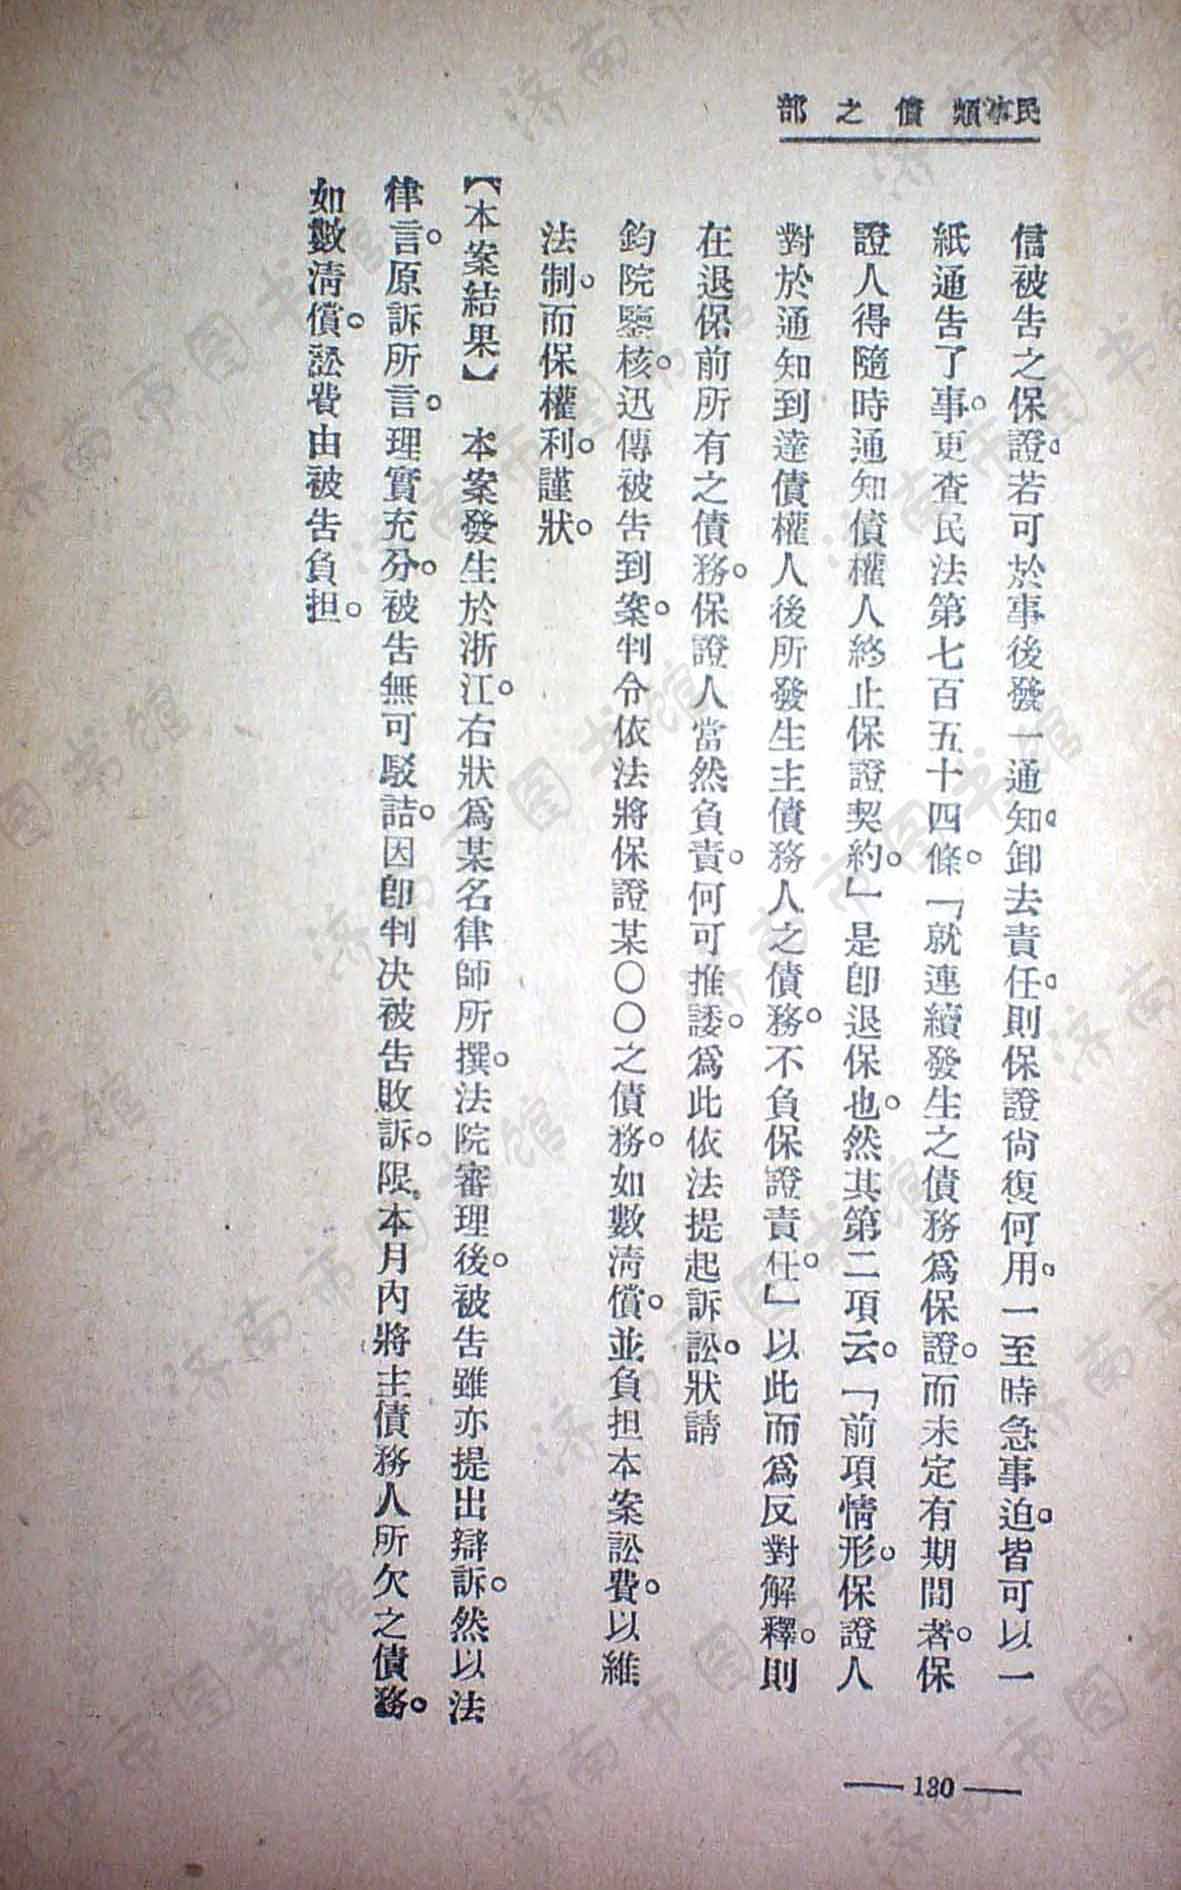 民事類債之部
信被告之保證。若可於事後發一通知。卸去責任。則保證尙復何用。一至時急事迫。皆可以一
紙通告了事。更查民法第七百五十四條。「就連續發生之債務爲保證。而未定有期間者。保
證人得隨時通知債權人終止保證契約。」是卽退保也。然其第二項云。「前項情形。保證人
對於通知到達債權人後所發生主債務人之債務。不負保證責任。」以此而爲反對解釋。則
在退保前所有之債務。保證人當然負責。何可推諉。爲此依法提起訴訟。狀請
鈞院鑒核。迅傳被告到案。判令依法將保證某○○之債務。如數淸償。並負担本案訟費。以維
法制。而保權利。謹狀。
【本案結果】 本案發生於浙江。右狀爲某名律師所撰。法院審理後。被告雖亦提出辯訴。然以法
律言。原訴所言。理實充分。被告無可駁詰。因卽判决被告敗訴。限本月內將主債務人所欠之債務。
如數淸償。訟費由被告負担。
130
济南市图书馆